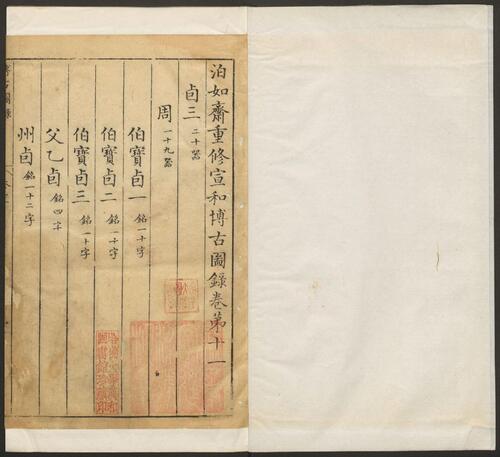 泊如齋重修宣和博古圖錄卷第十一
卣三 二十器
周 一十九器
伯寶卣一 銘一十字
伯寶卣二 銘一十字
伯寶卣三 銘一十字
父乙卣 銘四字
州卣 銘一十二字